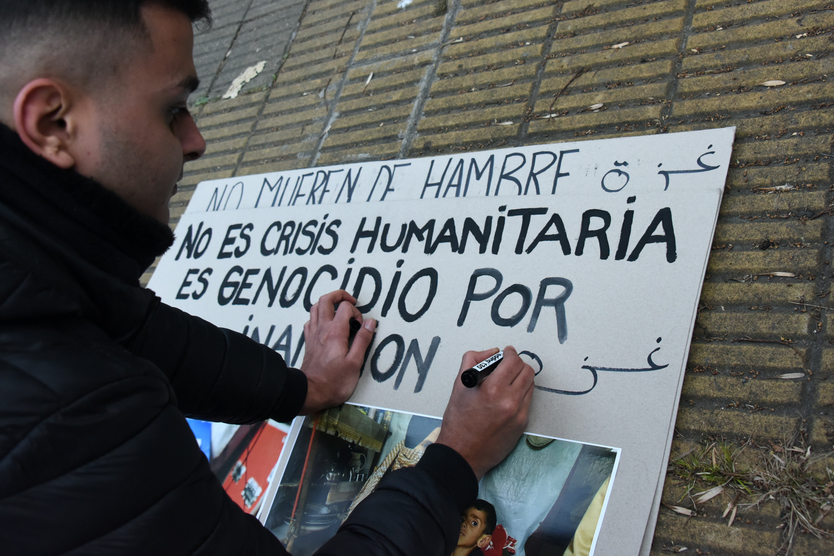 NO MUEREN DE HAMBRE غزة
NO ES CRISIS HUMANITARIA
ES GENOCIDIO POR
غزة